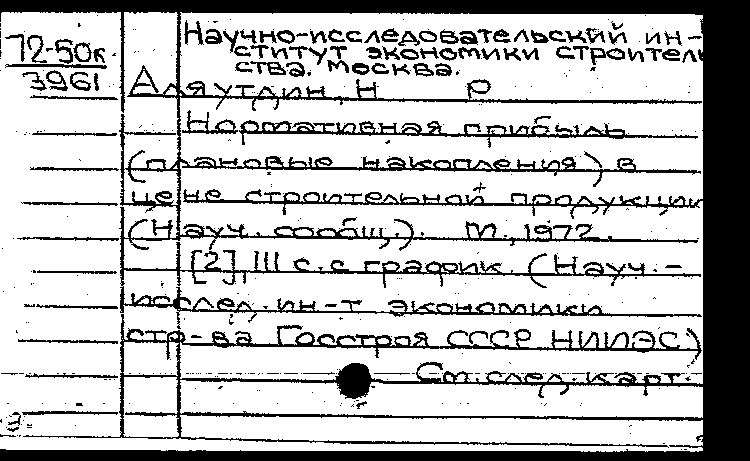 Научно-исследовательский ин-
ститут экономики строитель
ства. Москва.
72-50к
3961
Аляутдин, Н Р
Нормативная прибыль
(плановые накопления) в
цене строительной продукции
(Науч. сообщ.). М., 1972.
[2], III с. с график. (Науч.-
исслед. ин-т экономики
стр-ва Госстроя СССР НИИЭС)
См. след. карт.